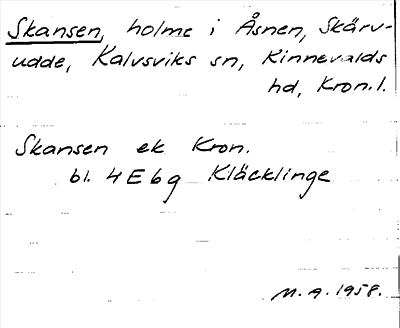 Skansen, holme i Åsnen, Skärv-
udde, Kalvsviks sn, Kinnevalds
hd, Kron.l.
Skansen ek Kron.
bl. 4E6g Kläcklinge
M.A. 1958.